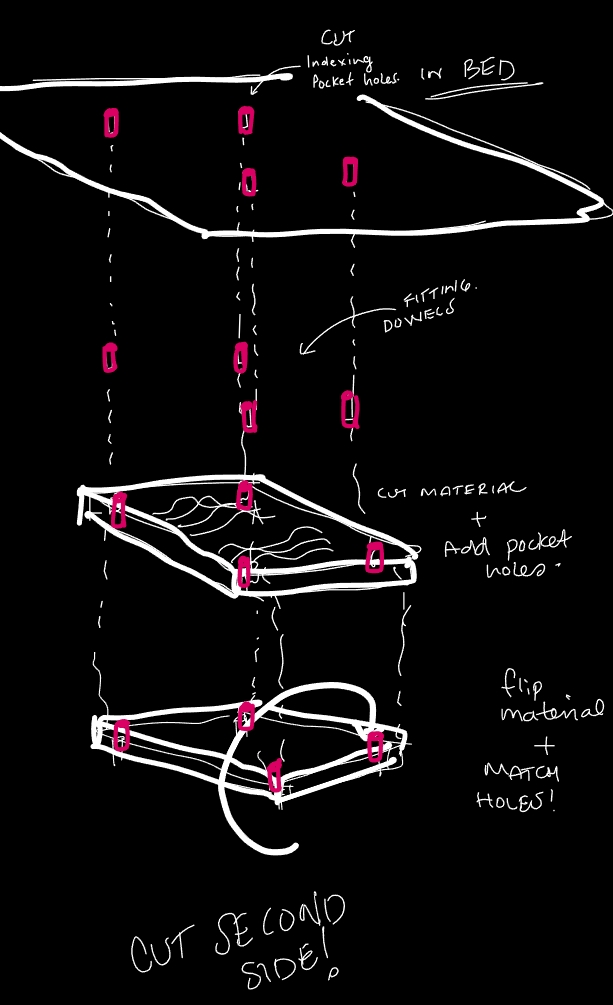 CUT
Indexing
Pocket holes. IN BED
FITTING.
DOWELS
CUT MATERIAL
+
Add pocket
holes.
flip
material
+
MATCH
HOLES!
CUT SECOND
SIDE!